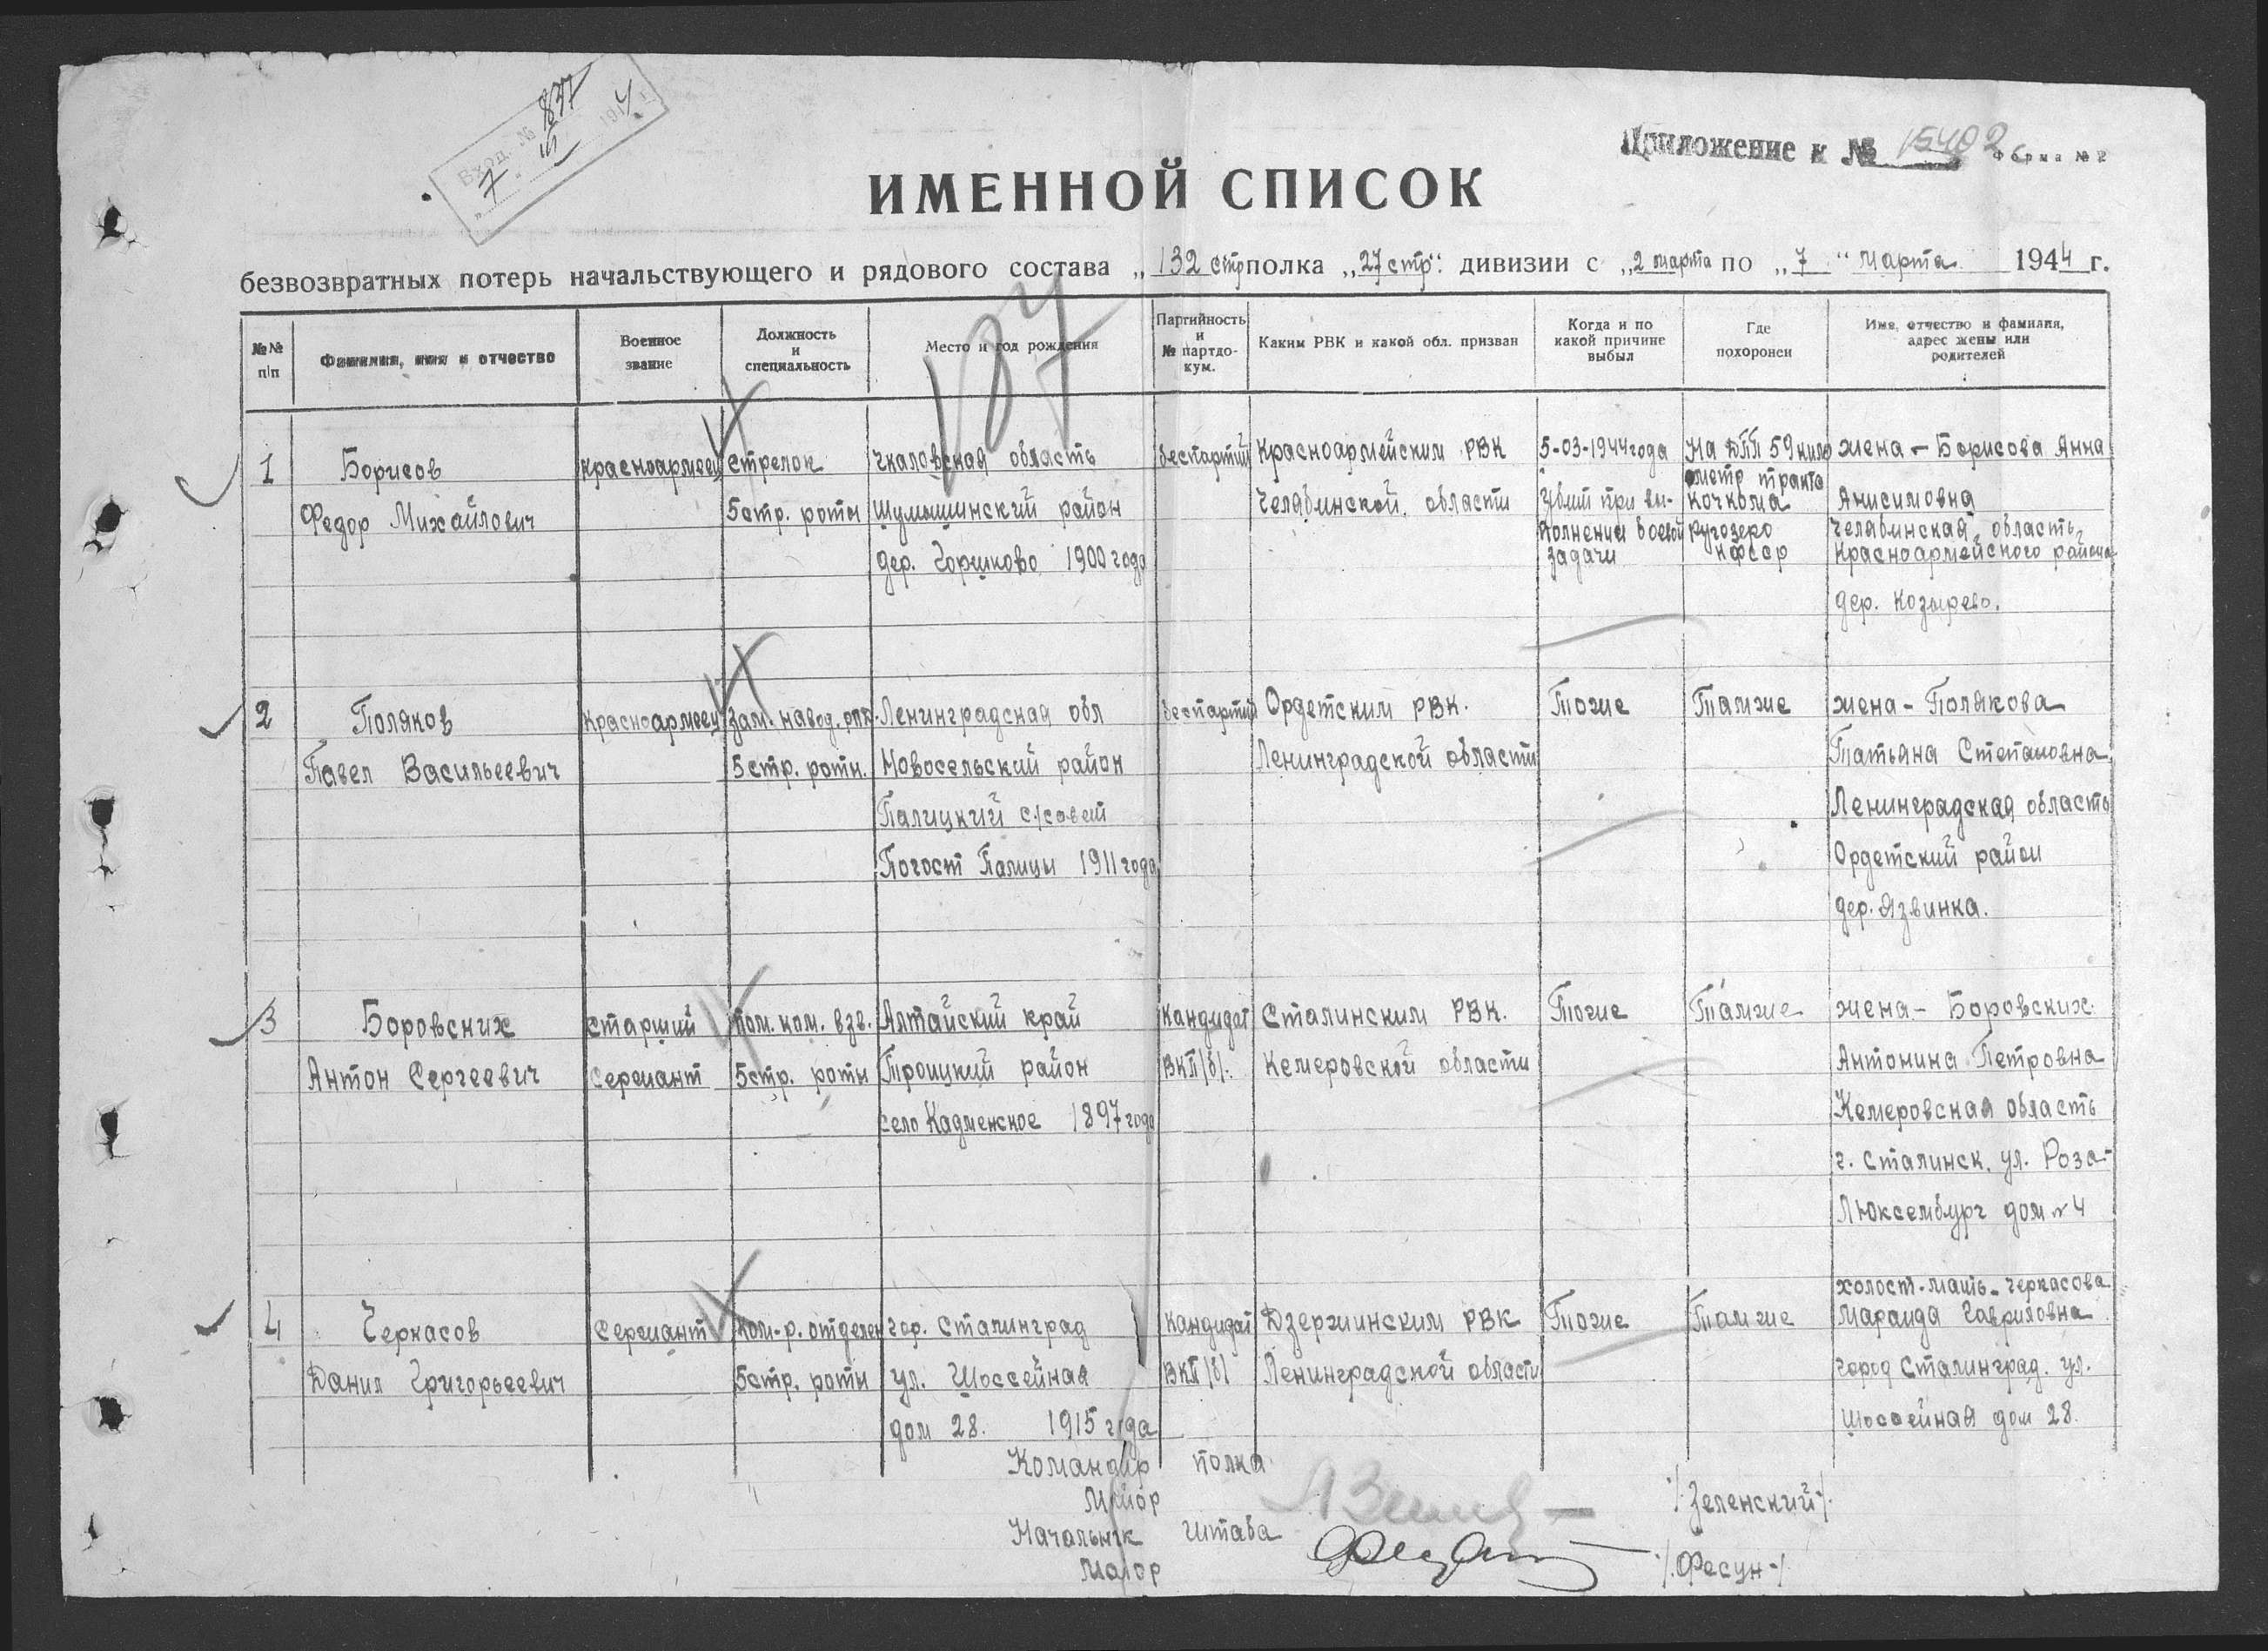 Вход. № 837
"7" III 1944 г.
Приложение к № 15402с
Форма № 2
ИМЕННОЙ СПИСОК
безвозвратных потерь начальствующего и рядового состава „132 стр полка „27 стр". дивизии с „2 марта по „7" марта 1944 г.
187
№№ п/п
Фамилия, имя и отчество
Военное звание
Должность и специальность
Место и год рождения
Партийность и № партдокум.
Каким РВК и какой обл. призван
Когда и по какой причине выбыл
Где похоронен
Имя, отчество и фамилия, адрес жены или родителей
1
Борисов
Федор Михайлович
красноармеец
стрелок
5 стр. роты
Чкаловская область
Шумышинский район
дер. Горшково 1900 года
беспартий
Красноармейским РВК
Челябинской области
5-03-1944 года
убит при вы-
полнении боевой
задачи
На ДПП 59 кило
метр тракта
кочкома
Ругозеро
КФССР
жена - Борисова Анна
Анисимовна
Челябинская область
Красноармейского района
дер. Козырево.
2
Поляков
Павел Васильеевич
красноармеец
зам. навод. рпк.
5 стр. роты.
Ленинградская обл
Новосельский район
Палицкий с/совет
Погост Палицы 1911 года
беспартий
Ордетским РВК.
Ленинградской области
Тоже
Тамже
жена - Полякова
Татьяна Степановна.
Ленинградская область
Ордетский район
дер. Язвинка.
3
Боровских
Антон Сергеевич
старший
сержант
пом. ком. взв.
5 стр. роты
Алтайский край
Троицкий район
село Кадменское 1897 года
Кандидат
ВКП/б/.
Сталинским РВК.
Кемеровской области
Тоже
Тамже
жена - Боровских.
Антонина Петровна
Кемеровская область
г. Сталинск, ул. Роза-
Люксембург дом № 4
4
Черкасов
Данил Григорьеевич
Сержант
ком-р. отделен
5 стр. роты
гор. Сталинград
ул. Шоссейная
дом 28. 1915 года
Кандидат
ВКП/б/
Дзержинским РВК
Ленинградской области
Тоже
Тамже
холост - мать - Черкасова
Мараида Гавриловна
город Сталинград. ул.
Шоссейная дом 28.
Командир полка
Майор
/Зеленский/.
Начальник штаба
Майор
/.Фесун-/